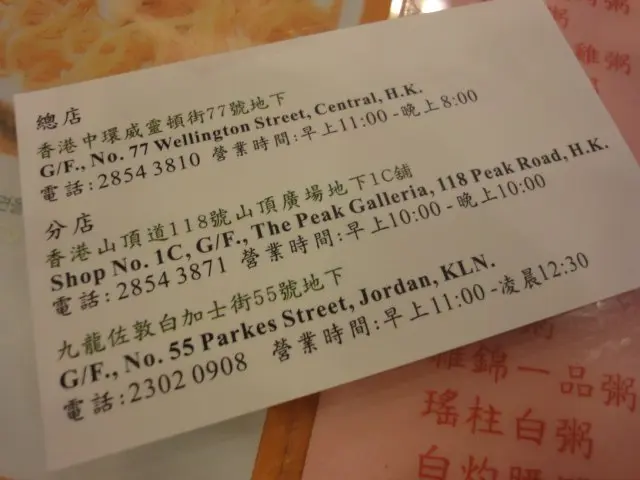 總店
香港中環威靈頓街77號地下
G/F., No. 77 Wellington Street, Central, H.K.
電話:2854 3810 營業時間:早上11:00-晚上8:00
分店
香港山頂道118號山頂廣場地下1C舖
Shop No. 1C, G/F., The Peak Galleria, 118 Peak Road, H.K.
電話:2854 3871 營業時間:早上10:00-晚上10:00
九龍佐敦白加士街55號地下
G/F., No. 55 Parkes Street, Jordan, KLN.
電話:2302 0908 營業時間:早上11:00-凌晨12:30
粥
雞粥
粥
粥
錦一品粥
瑤柱白粥
白灼